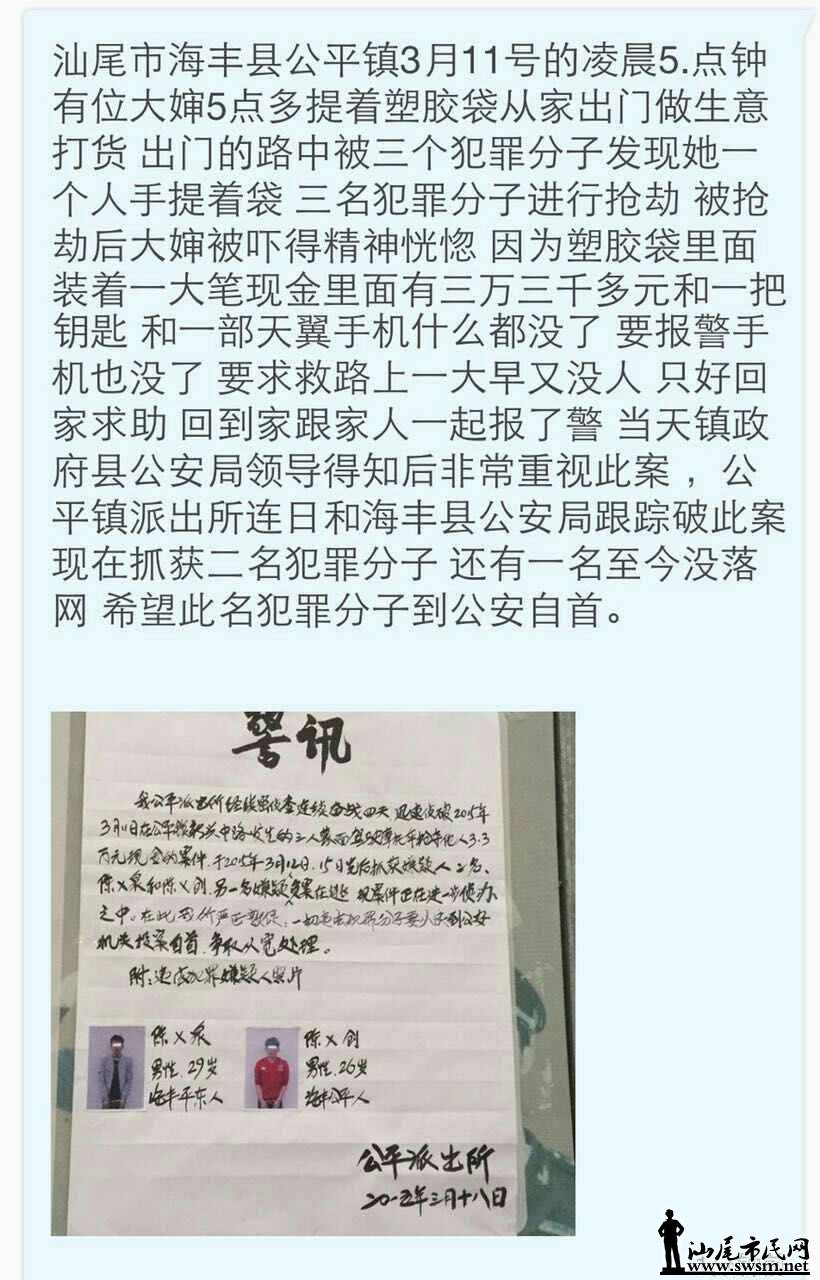 汕尾市海丰县公平镇3月11号的凌晨5.点钟
有位大婶5点多提着塑胶袋从家出门做生意
打货 出门的路中被三个犯罪分子发现她一
个人手提着袋 三名犯罪分子进行抢劫 被抢
劫后大婶被吓得精神恍惚 因为塑胶袋里面
装着一大笔现金里面有三万三千多元和一把
钥匙 和一部天翼手机什么都没了 要报警手
机也没了 要求救路上一大早又没人 只好回
家求助 回到家跟家人一起报了警 当天镇政
府县公安局领导得知后非常重视此案 ，公
平镇派出所连日和海丰县公安局跟踪破此案
现在抓获二名犯罪分子 还有一名至今没落
网 希望此名犯罪分子到公安自首。
警讯
我公平派出所经缜密侦查连续奋战四天 迅速侦破2015年
3月11日在公平镇 中路发生的三人 驾驶摩托车抢夺他人3.3
万元现金的案件.于2015年3月12日、15日先后抓获嫌疑人2名、
陈X泉和陈X创.另一名嫌疑 在逃 现案件正在进一步侦办
之中.在此 严正 一切违法犯罪分子要 到公安
机关投案自首.争取从宽处理。
附:违法犯罪嫌疑人照片
陈X泉
男性.29岁
海丰平东人
陈X创
男性.26岁
海丰公平人
公平派出所
二0一五年三月十八日
汕尾市民网
www.swsm.net